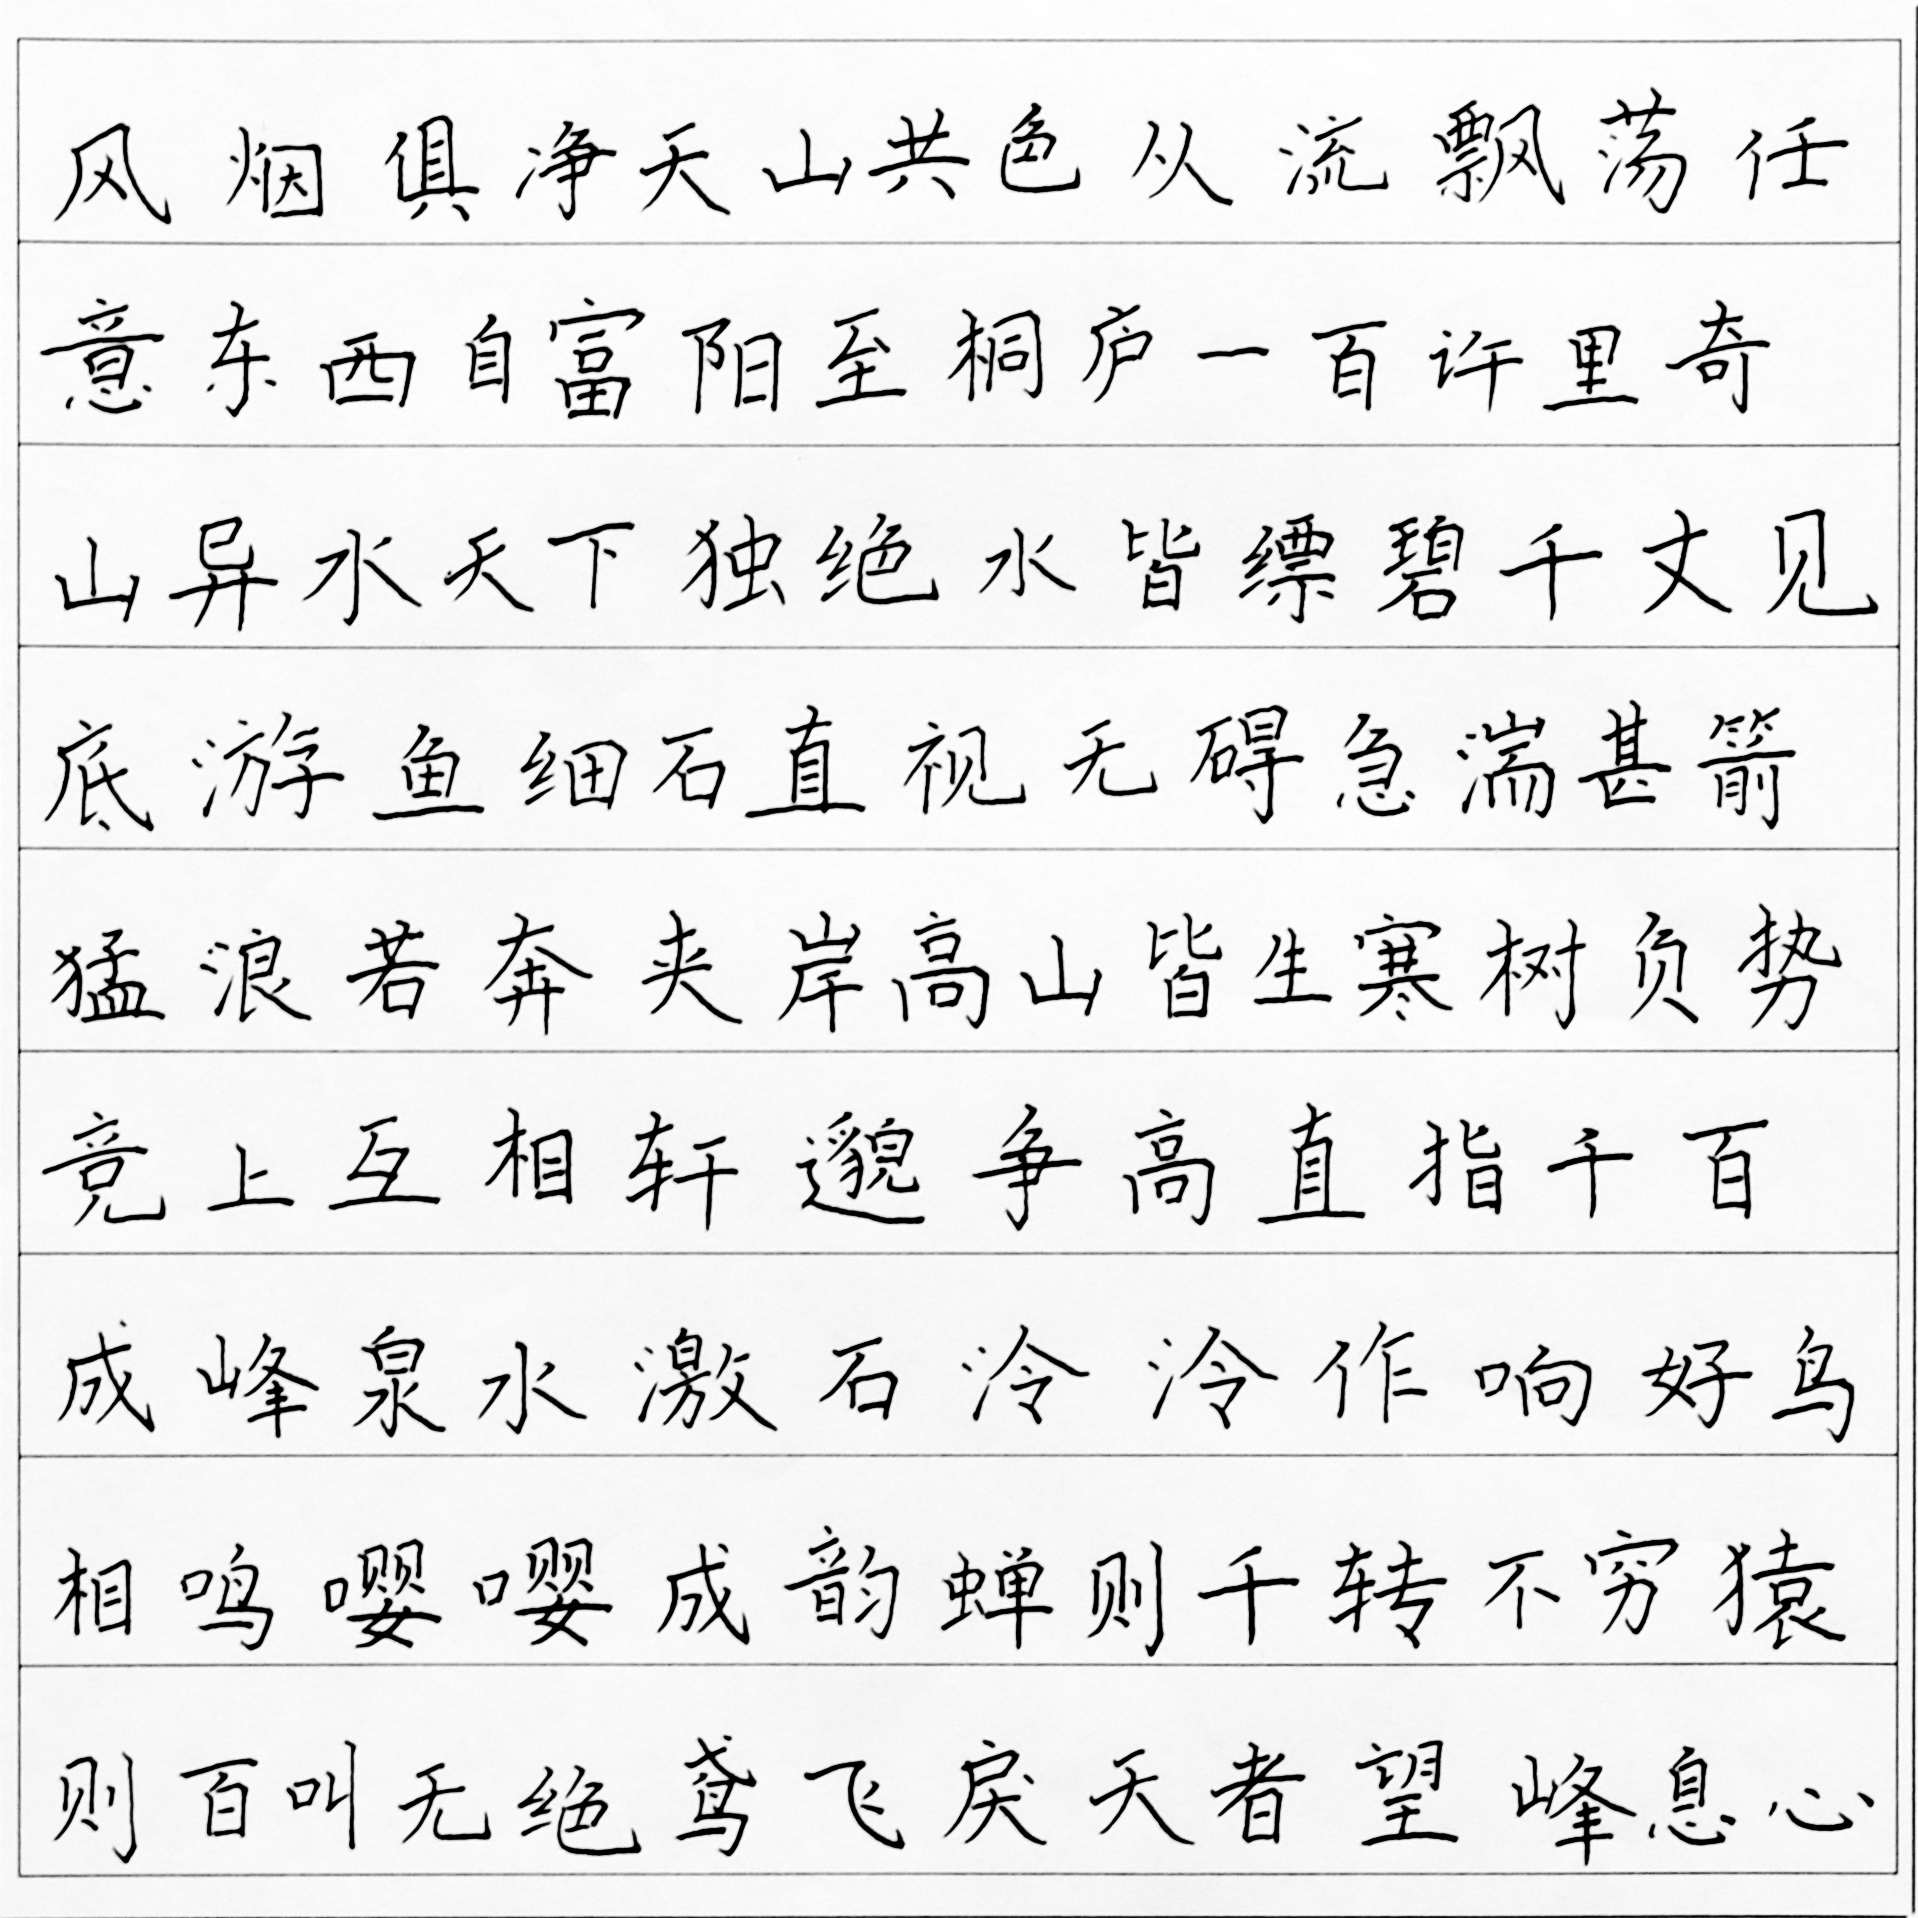 风烟俱净天山共色从流飘荡任
意东西自富阳至桐庐一百许里奇
山异水天下独绝水皆缥碧千丈见
底游鱼细石直视无碍急湍甚箭
猛浪若奔夹岸高山皆生寒树负势
竞上互相轩邈争高直指千百
成峰泉水激石泠泠作响好鸟
相鸣嘤嘤成韵蝉则千转不穷猿
则百叫无绝鸢飞戾天者望峰息心